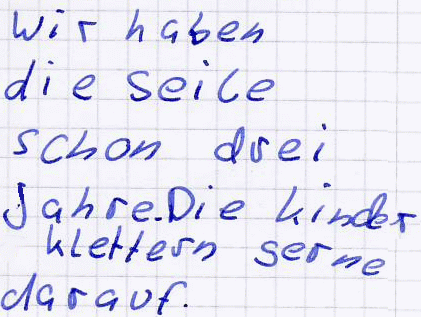 Wir haben
die Seile
schon drei
Jahre. Die Kinder
klettern gerne
darauf.